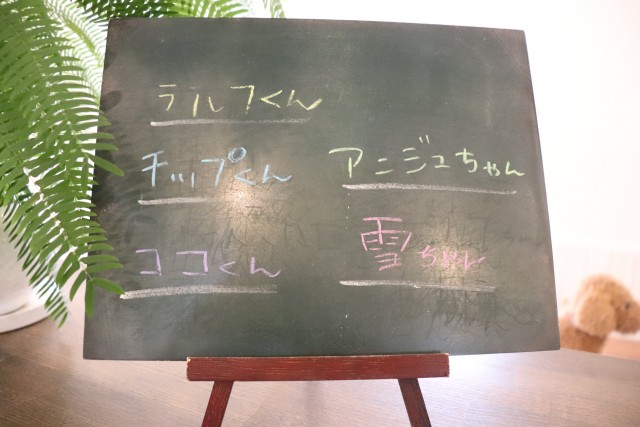 ラルフくん
チップくん
ココくん
アニジュちゃん
雪ちゃん